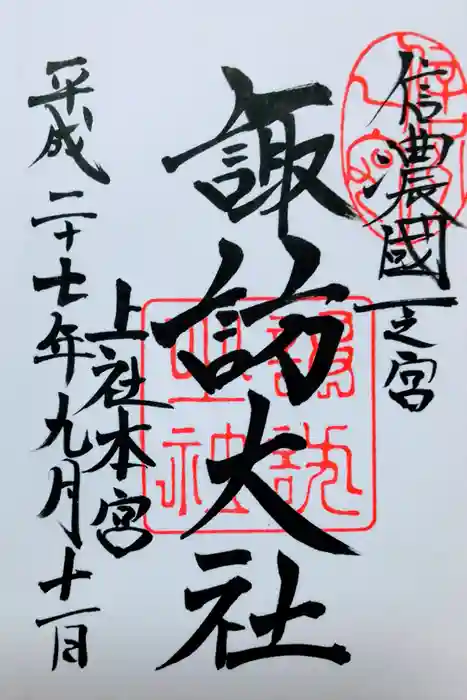 信濃國一之宮
諏訪大社
上社本宮
平成二十七年九月十一日